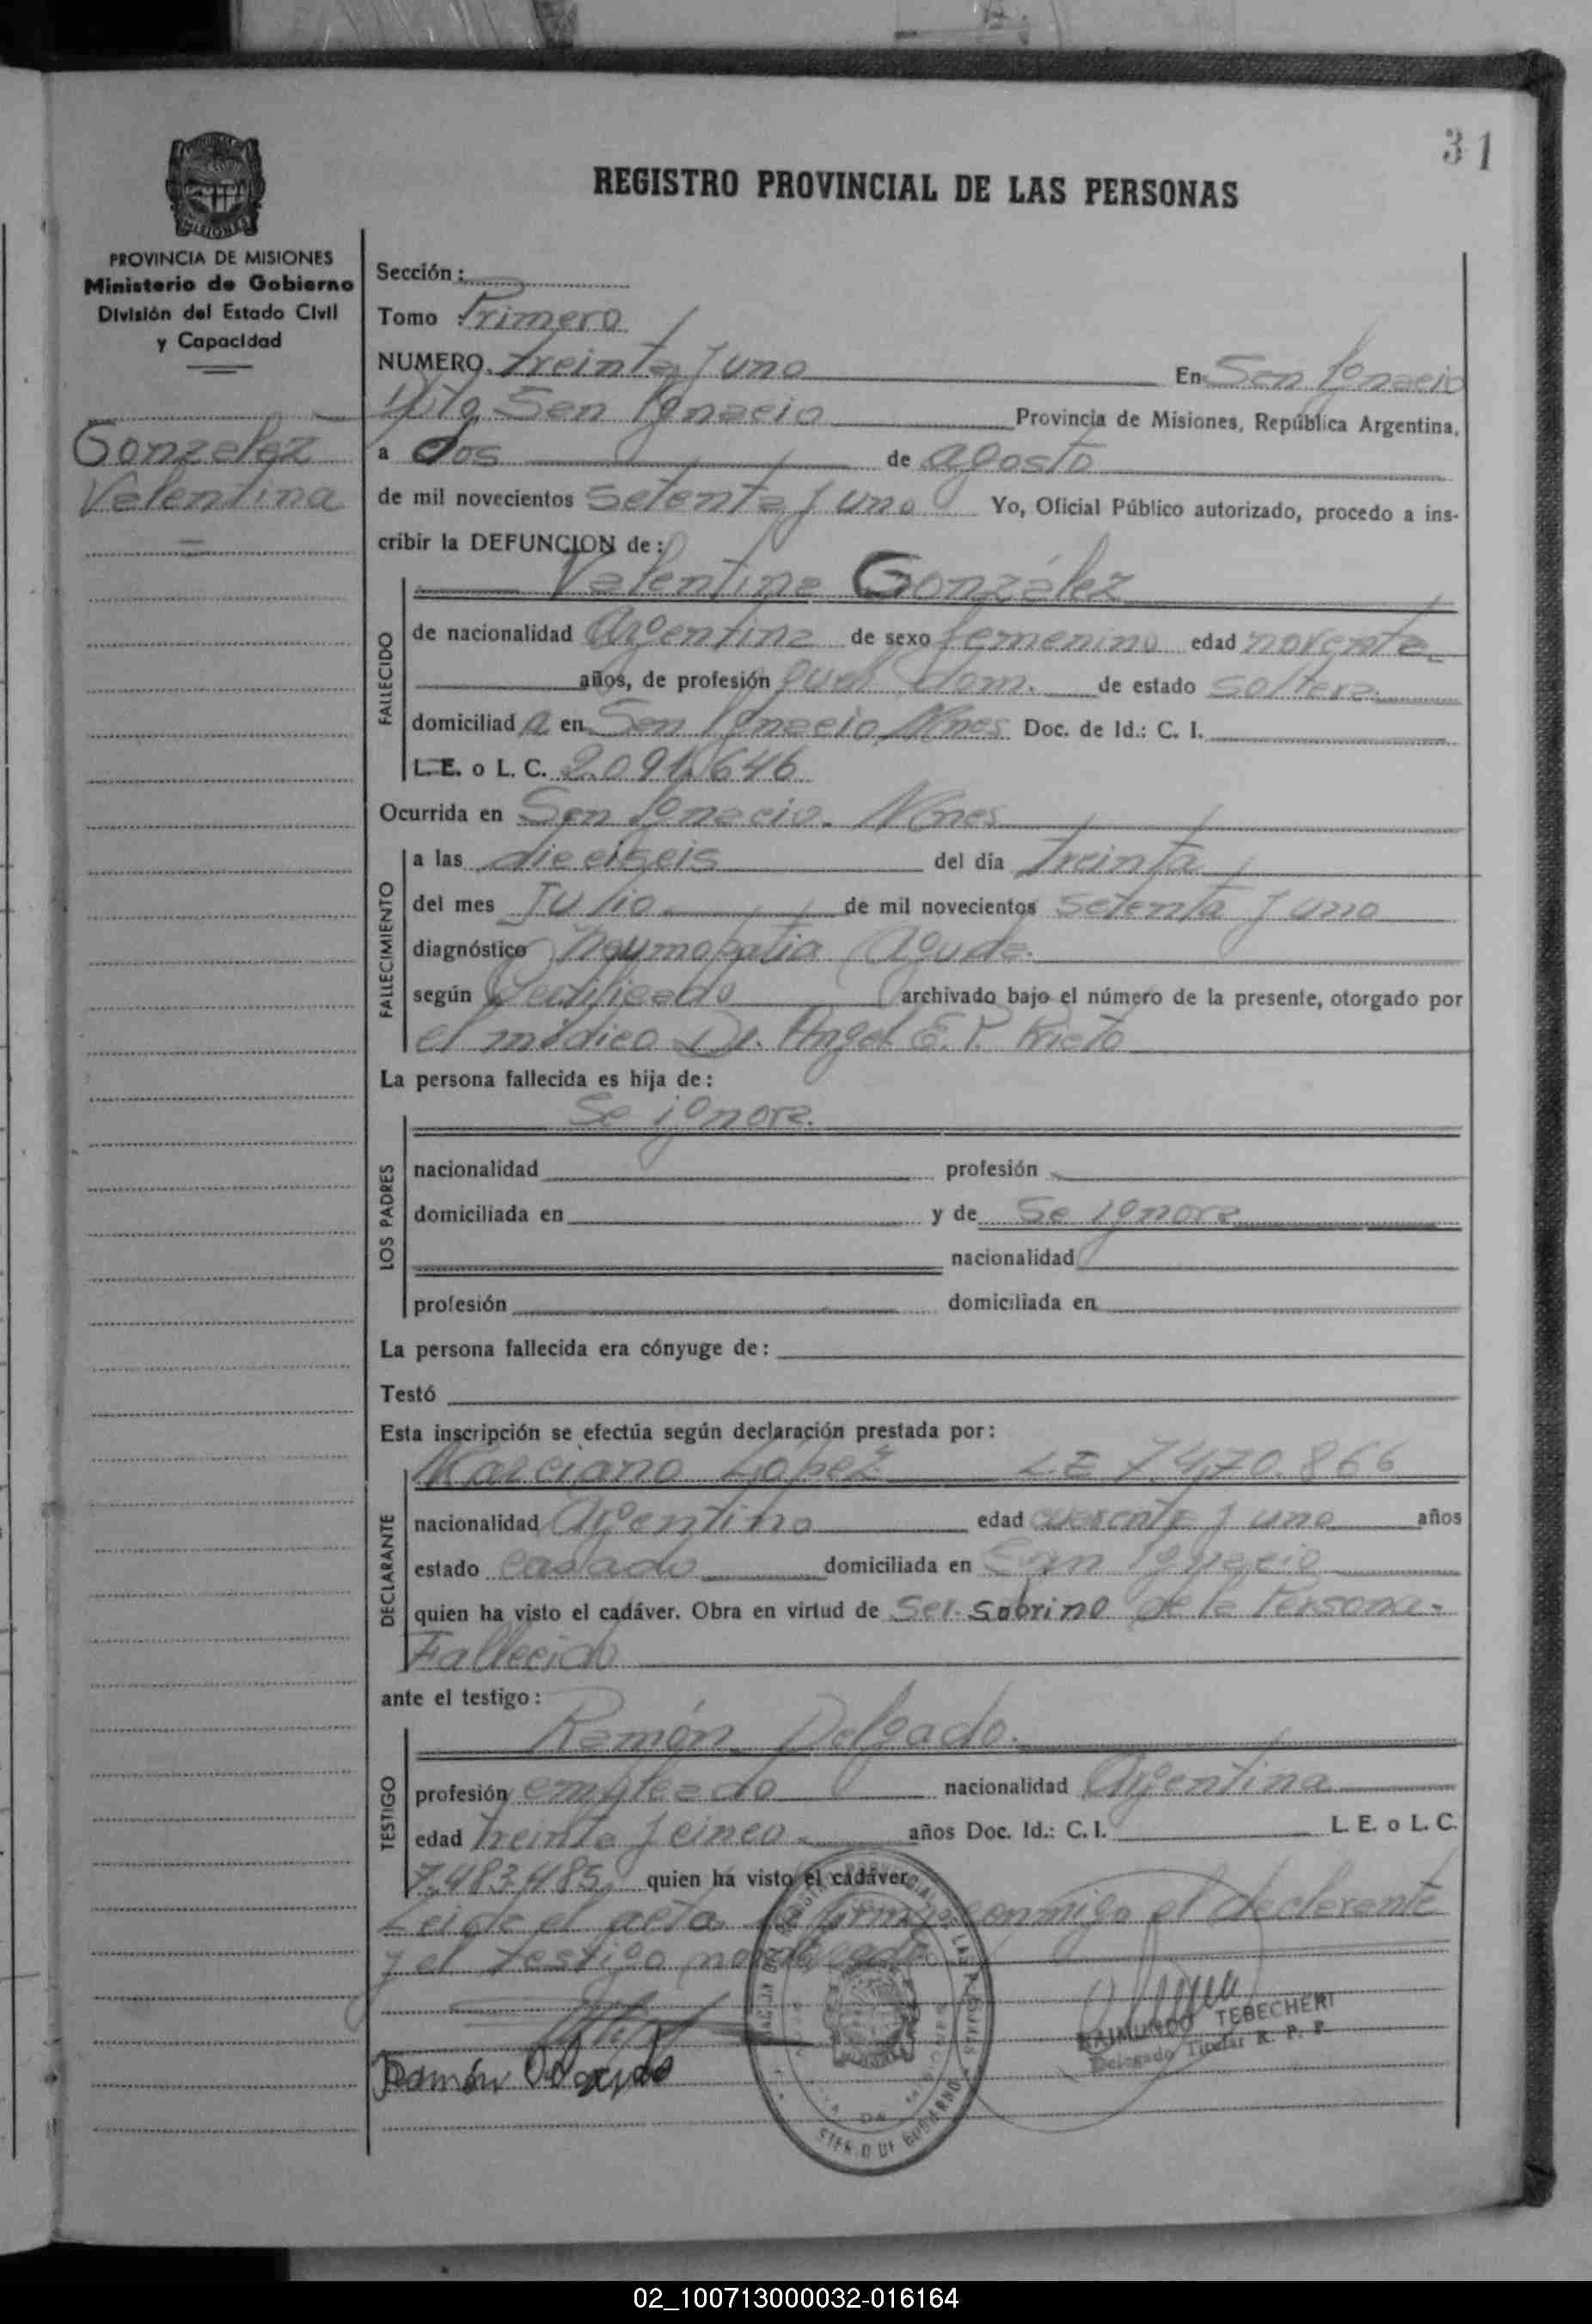 31
REGISTRO PROVINCIAL DE LAS PERSONAS
PROVINCIA DE MISIONES
Ministerio de Gobierno
División del Estado Civil
y Capacidad
Gonzalez
Valentina
Sección:
Tomo Primero
NUMERO treinta y uno En San Ignacio
Dpto San Ignacio Provincia de Misiones, República Argentina,
a dos de agosto
de mil novecientos setenta y uno Yo, Oficial Público autorizado, procedo a ins-
cribir la DEFUNCION de:
Valentina González
FALLECIDO
de nacionalidad Argentina de sexo femenino edad noventa
años, de profesión queh. dom. de estado soltera
domiciliad a en San Ignacio Mnes Doc. de Id.: C. I.
L. E. o L. C. 2.091.646
Ocurrida en San Ignacio. Mnes
FALLECIMIENTO
a las dieciseis del día treinta
del mes Julio de mil novecientos setenta y uno
diagnóstico Neumopatia Aguda.
según Certificado archivado bajo el número de la presente, otorgado por
el médico Dr. Angel E. P. Prieto
La persona fallecida es hija de:
LOS PADRES
Se ignora.
nacionalidad profesión
domiciliada en y de Se ignora
nacionalidad
profesión domiciliada en
La persona fallecida era cónyuge de:
Testó
Esta inscripción se efectúa según declaración prestada por:
DECLARANTE
Marciano López L.E 7.470.866
nacionalidad Argentino edad cuarenta y uno años
estado casado domiciliada en San Ignacio
quien ha visto el cadáver. Obra en virtud de Ser. sobrino de la Persona-
Fallecida
ante el testigo:
TESTIGO
Ramón Delgado.
profesión empleado nacionalidad Argentina
edad treinta y cinco años Doc. Id.: C. I. L. E. o L. C.
7.483.485 quien ha visto el cadáver
Leida el acta la firma conmigo el declarante
y el testigo
Ramón Delgado
RAIMUNDO TEBECHERI
Delegado Titular R. P. P.
02_100713000032-016164